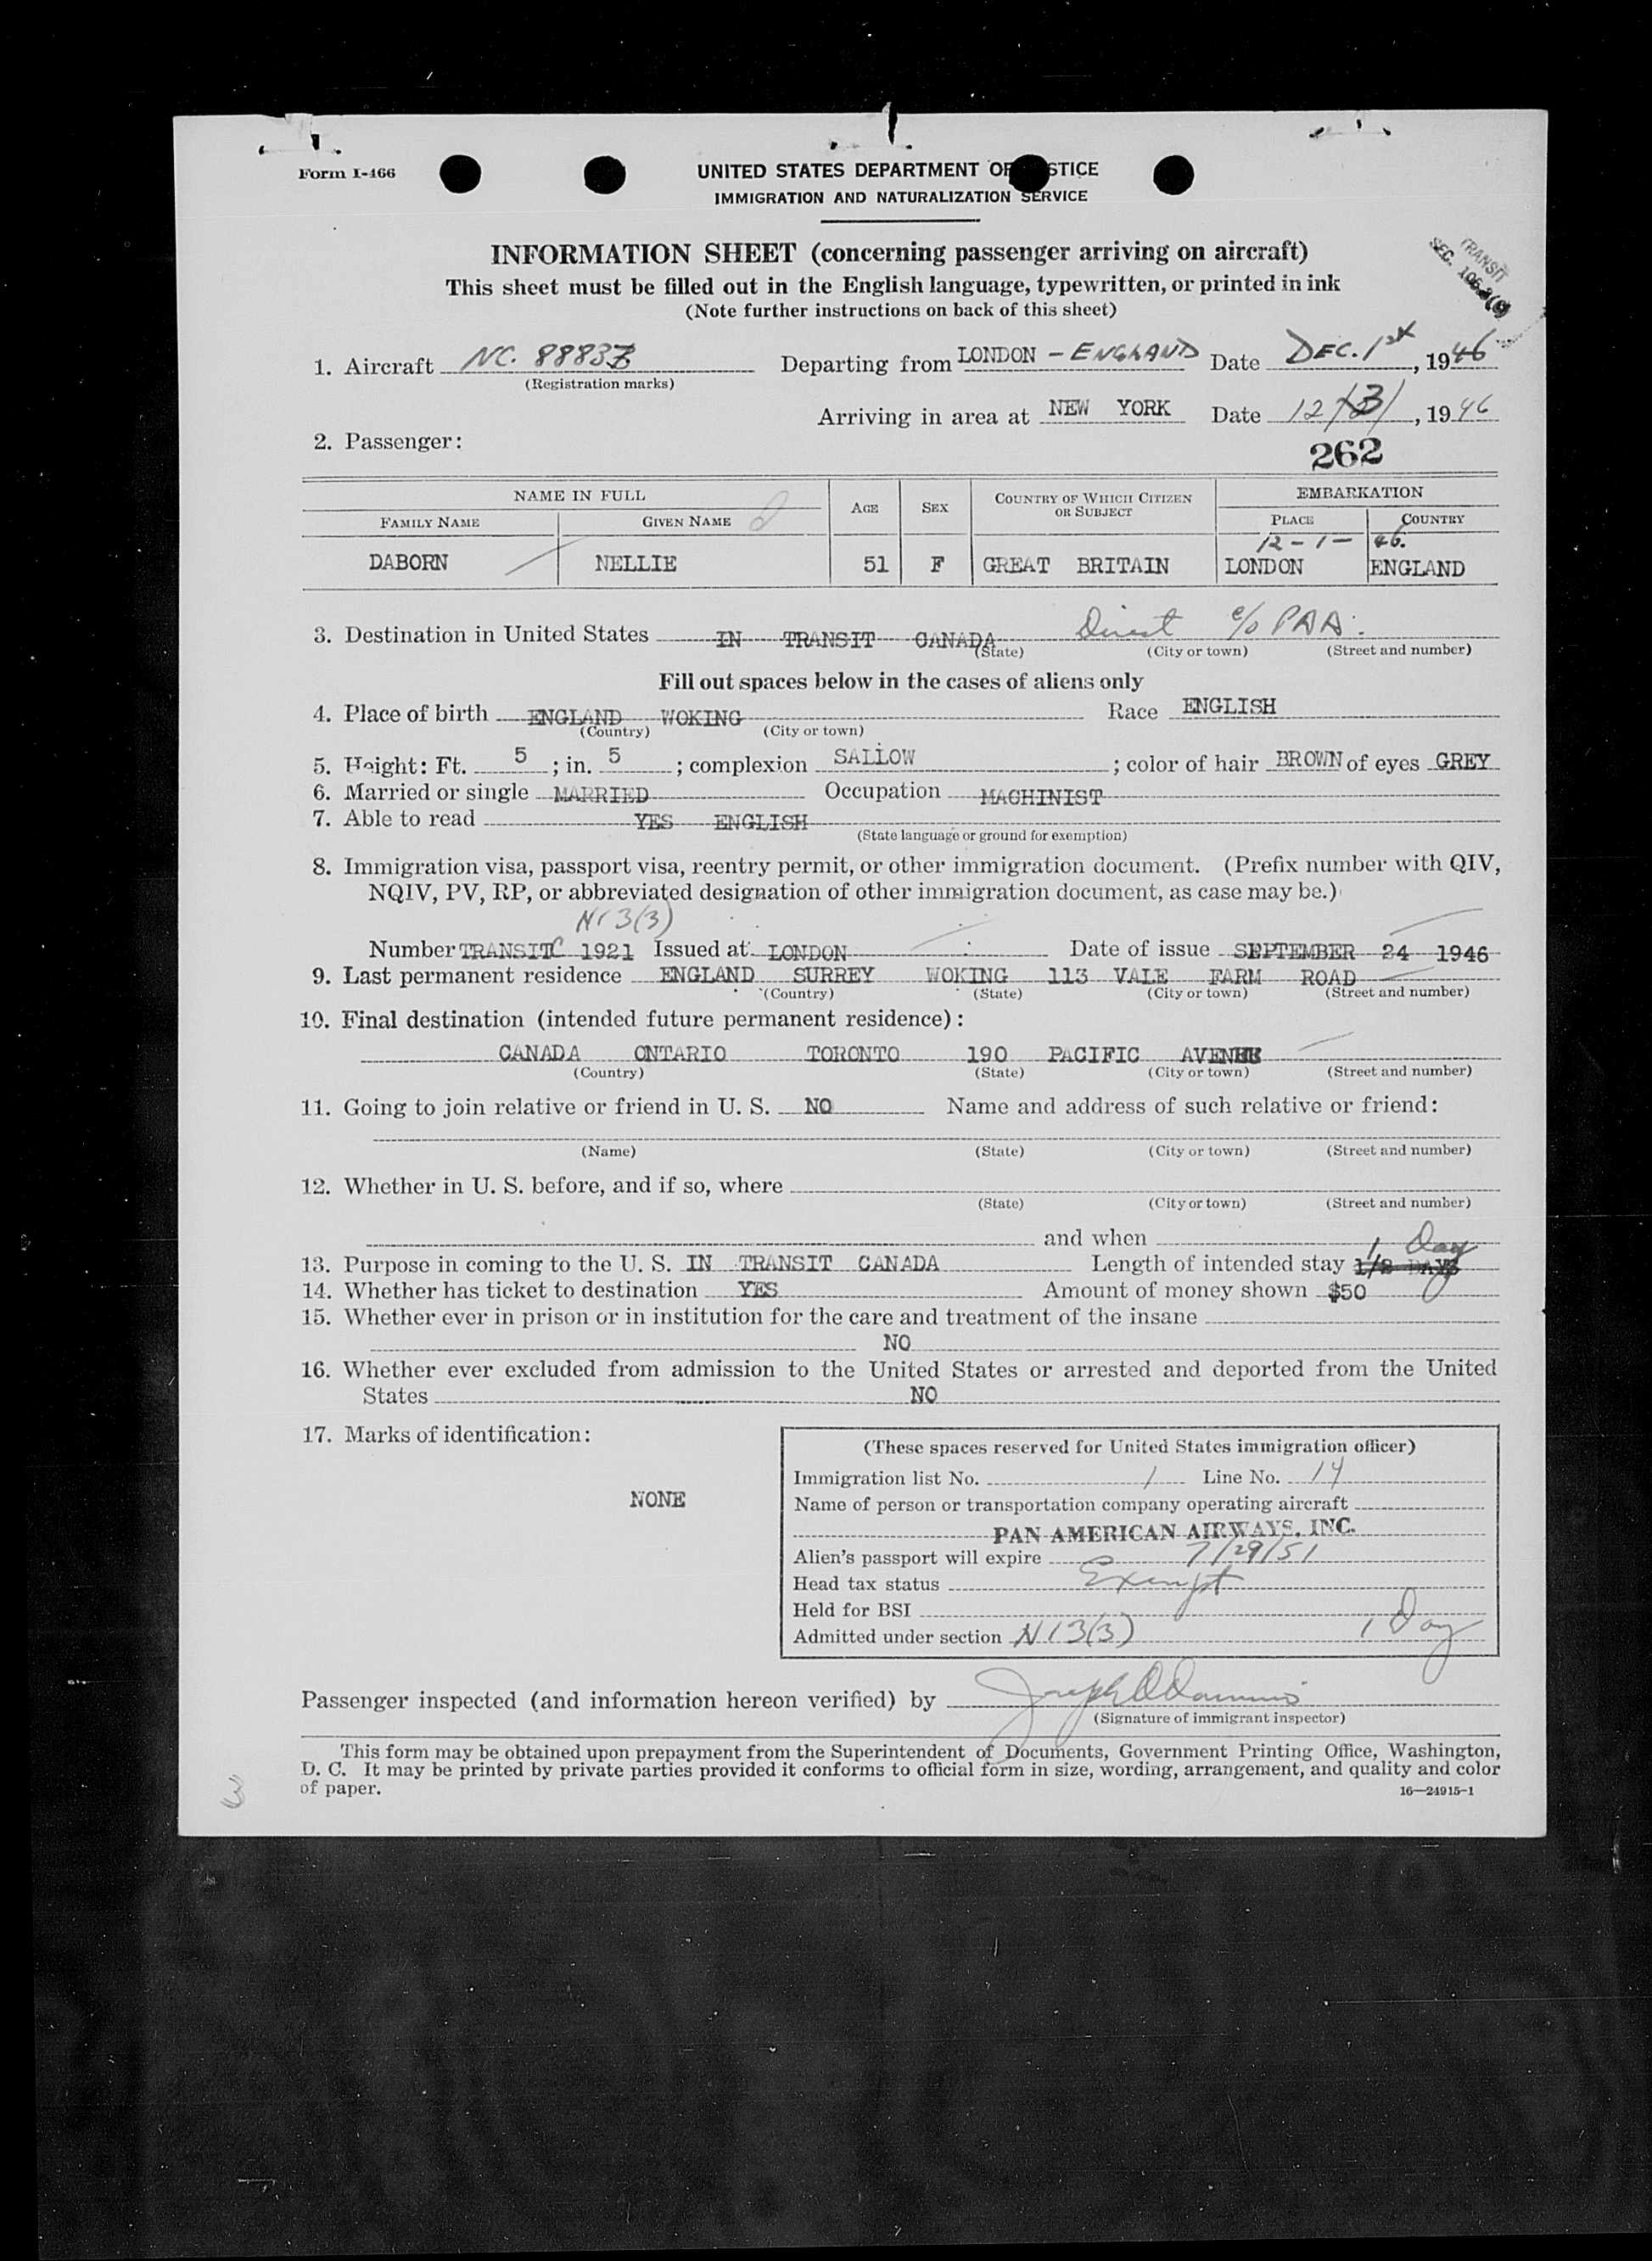 Form I-466
UNITED STATES DEPARTMENT OF JUSTICE
IMMIGRATION AND NATURALIZATION SERVICE
INFORMATION SHEET (concerning passenger arriving on aircraft)
TRANSIT
SEC.
This sheet must be filled out in the English language, typewritten, or printed in ink
(Note further instructions on back of this sheet)
1. Aircraft NC. Departing from LONDON - ENGLAND Date DEC. 1st, 1946
(Registration marks)
Arriving in area at NEW YORK Date 1946
2. Passenger:
262
NAME IN FULL AGE SEX COUNTRY OF WHICH CITIZEN OR SUBJECT EMBARKATION
FAMILY NAME GIVEN NAME PLACE COUNTRY
12-1-46.
DABORN NELLIE 51 F GREAT BRITAIN LONDON ENGLAND
3. Destination in United States IN TRANSIT CANADA Direct c/o PAA.
(State) (City or town) (Street and number)
Fill out spaces below in the cases of aliens only
4. Place of birth ENGLAND WOKING Race ENGLISH
(Country) (City or town)
5. Height: Ft. 5; in. 5; complexion SALLOW; color of hair BROWN of eyes GREY
6. Married or single MARRIED Occupation MACHINIST
7. Able to read YES ENGLISH
(State language or ground for exemption)
8. Immigration visa, passport visa, reentry permit, or other immigration document. (Prefix number with QIV,
NQIV, PV, RP, or abbreviated designation of other immigration document, as case may be.)
N13(3)
Number TRANSITC 1921 Issued at LONDON Date of issue SEPTEMBER 24 1946
9. Last permanent residence ENGLAND SURREY WOKING 113 VALE FARM ROAD
(Country) (State) (City or town) (Street and number)
10. Final destination (intended future permanent residence):
CANADA ONTARIO TORONTO 190 PACIFIC AVENUE
(Country) (State) (City or town) (Street and number)
11. Going to join relative or friend in U. S. NO Name and address of such relative or friend:
(Name) (State) (City or town) (Street and number)
12. Whether in U. S. before, and if so, where
(State) (City or town) (Street and number)
and when
1 Day
13. Purpose in coming to the U. S. IN TRANSIT CANADA Length of intended stay 1/2 DAYS
14. Whether has ticket to destination YES Amount of money shown $50
15. Whether ever in prison or in institution for the care and treatment of the insane
NO
16. Whether ever excluded from admission to the United States or arrested and deported from the United
States NO
17. Marks of identification:
NONE
(These spaces reserved for United States immigration officer)
Immigration list No. 1 Line No. 14
Name of person or transportation company operating aircraft
PAN AMERICAN AIRWAYS, INC.
Alien's passport will expire 7/29/51
Head tax status Exempt
Held for BSI
Admitted under section N13(3) 1 Day
Passenger inspected (and information hereon verified) by Joseph
(Signature of immigrant inspector)
This form may be obtained upon prepayment from the Superintendent of Documents, Government Printing Office, Washington,
D. C. It may be printed by private parties provided it conforms to official form in size, wording, arrangement, and quality and color
of paper.
16—24915-1
3